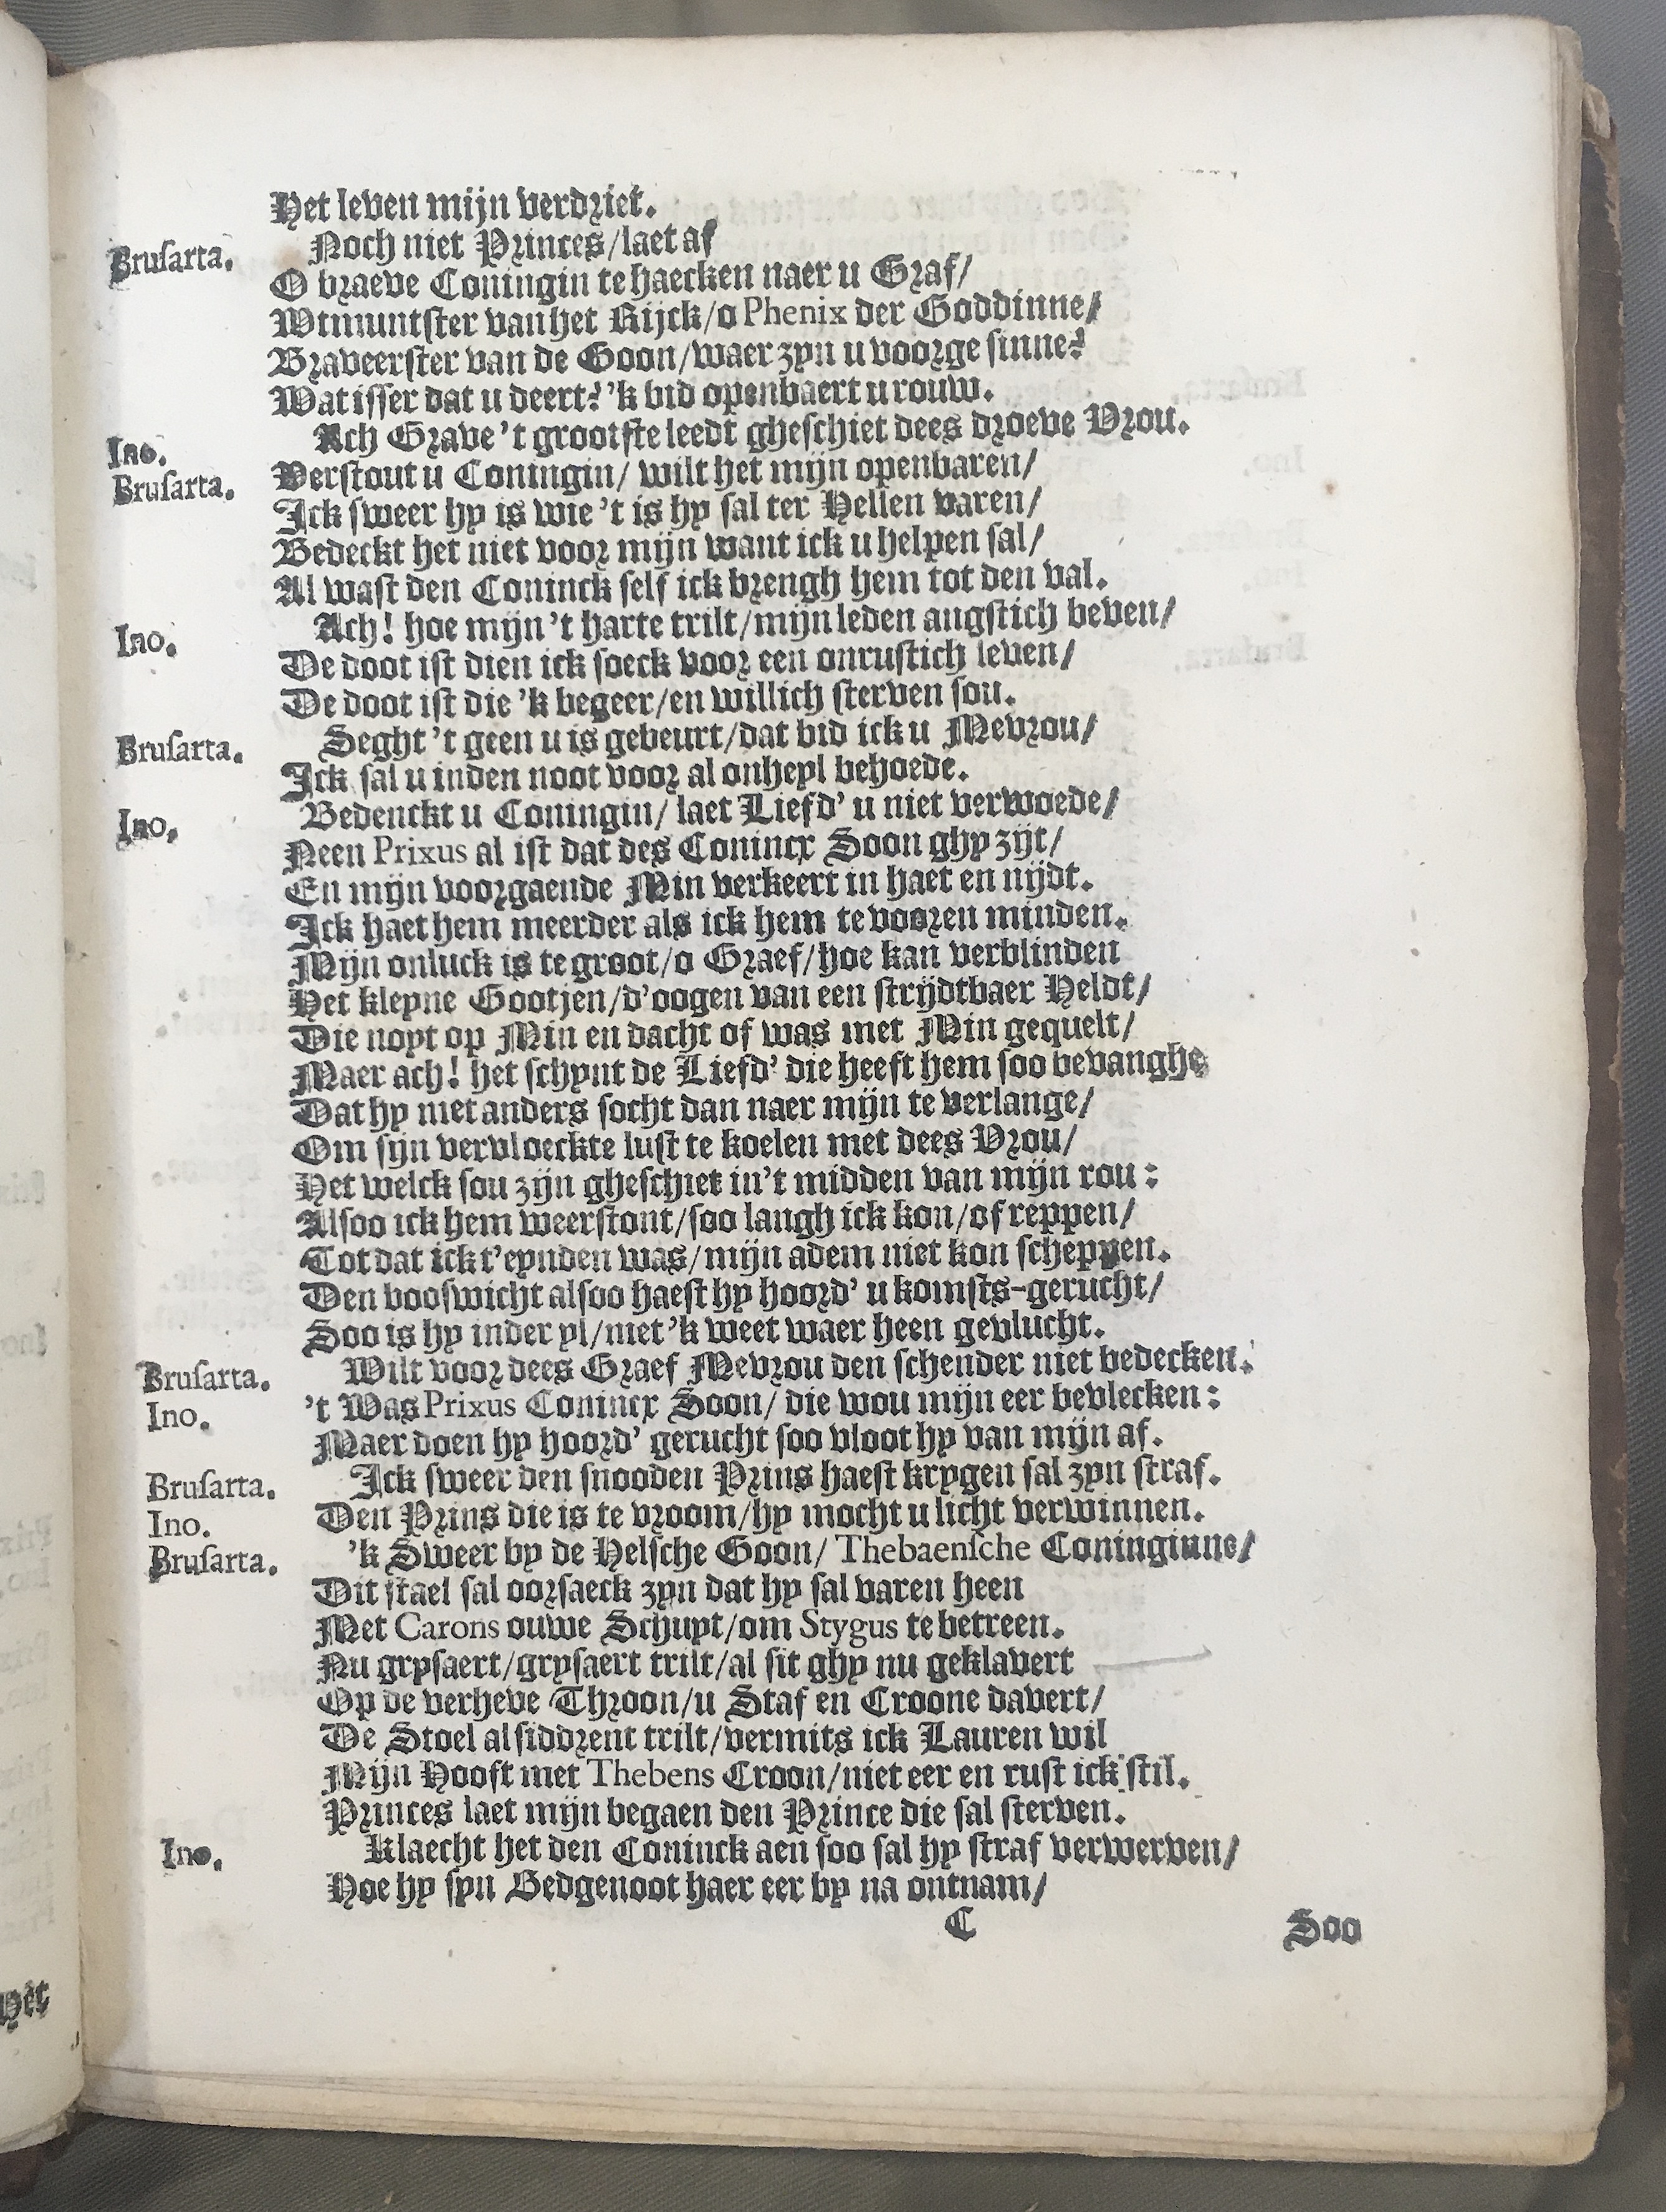 Het leven mijn verdriet.
Brusarta. Noch niet Princes/laet af
O braeve Coningin te haecken naer u Graf/
Wtmuntster van het Rijck/o Phenix der Goddinne/
Braveerster van de Goon/waer zyn u voorge sinne?
Wat isser dat u deert? 'k bid openbaert u rouw.
Ino. Ach Grave 't grootste leedt gheschiet dees droeve Vrou.
Brusarta. Verstout u Coningin/ wilt het mijn openbaren/
Ick sweer hy is wie 't is hy sal ter Hellen varen/
Bedeckt het niet voor mijn want ick u helpen sal/
Al wast den Coninck self ick brengh hem tot den val.
Ino. Ach! hoe mijn 't harte trilt/mijn leden angstich beven/
De doot ist dien ick soeck voor een onrustich leven/
De doot ist die 'k begeer/en willich sterven sou.
Brusarta. Seght 't geen u is gebeurt/dat bid ick u Mevrou/
Ick sal u inden noot voor al onheyl behoede.
Ino. Bedenckt u Coningin/ laet Liefd' u niet verwoede/
Neen Prixus al ist dat des Conincx Soon ghy zijt/
En mijn voorgaende Min verkeert in haet en nijdt.
Ick haet hem meerder als ick hem te vooren minden.
Mijn onluck is te groot/o Graef/hoe kan verblinden
Het kleyne Gootjen/d'oogen van een strijdtbaer Heldt/
Die noyt op Min en dacht of was met Min gequelt/
Maer ach! het schynt de Liefd' die heeft hem soo bevanghe
Dat hy niet anders socht dan naer mijn te verlange/
Om sijn vervloeckte lust te koelen met dees Vrou/
Het welck sou zijn gheschiet in't midden van mijn rou:
Alsoo ick hem weerstont/soo langh ick kon/of reppen/
Tot dat ick t'eynden was/mijn adem niet kon scheppen.
Den booswicht alsoo haest hy hoord' u komsts-gerucht/
Soo is hy inder yl/niet 'k weet waer heen gevlucht.
Brusarta. Wilt voor dees Graef Mevrou den schender niet bedecken.
Ino. 't Was Prixus Conincx Soon/ die wou mijn eer bevlecken:
Maer doen hy hoord' gerucht soo vloot hy van mijn af.
Brusarta. Ick sweer den snooden Prins haest krygen sal zyn straf.
Ino. Den Prins die is te vroom/hy mocht u licht verwinnen.
Brusarta. 'k Sweer by de Helsche Goon/ Thebaensche Coninginne/
Dit stael sal oorsaeck zyn dat hy sal varen heen
Met Carons ouwe Schuyt/om Stygus te betreen.
Nu grysaert/grysaert trilt/al sit ghy nu geklavert
Op de verheve Throon/u Staf en Croone davert/
De Stoel al siddrent trilt/vermits ick Lauren wil
Mijn Hooft met Thebens Croon/niet eer en rust ick stil.
Princes laet mijn begaen den Prince die sal sterven.
Ino. Klaecht het den Coninck aen soo sal hy straf verwerven/
Hoe hy syn Bedgenoot haer eer by na ontnam/
C Soo
Het